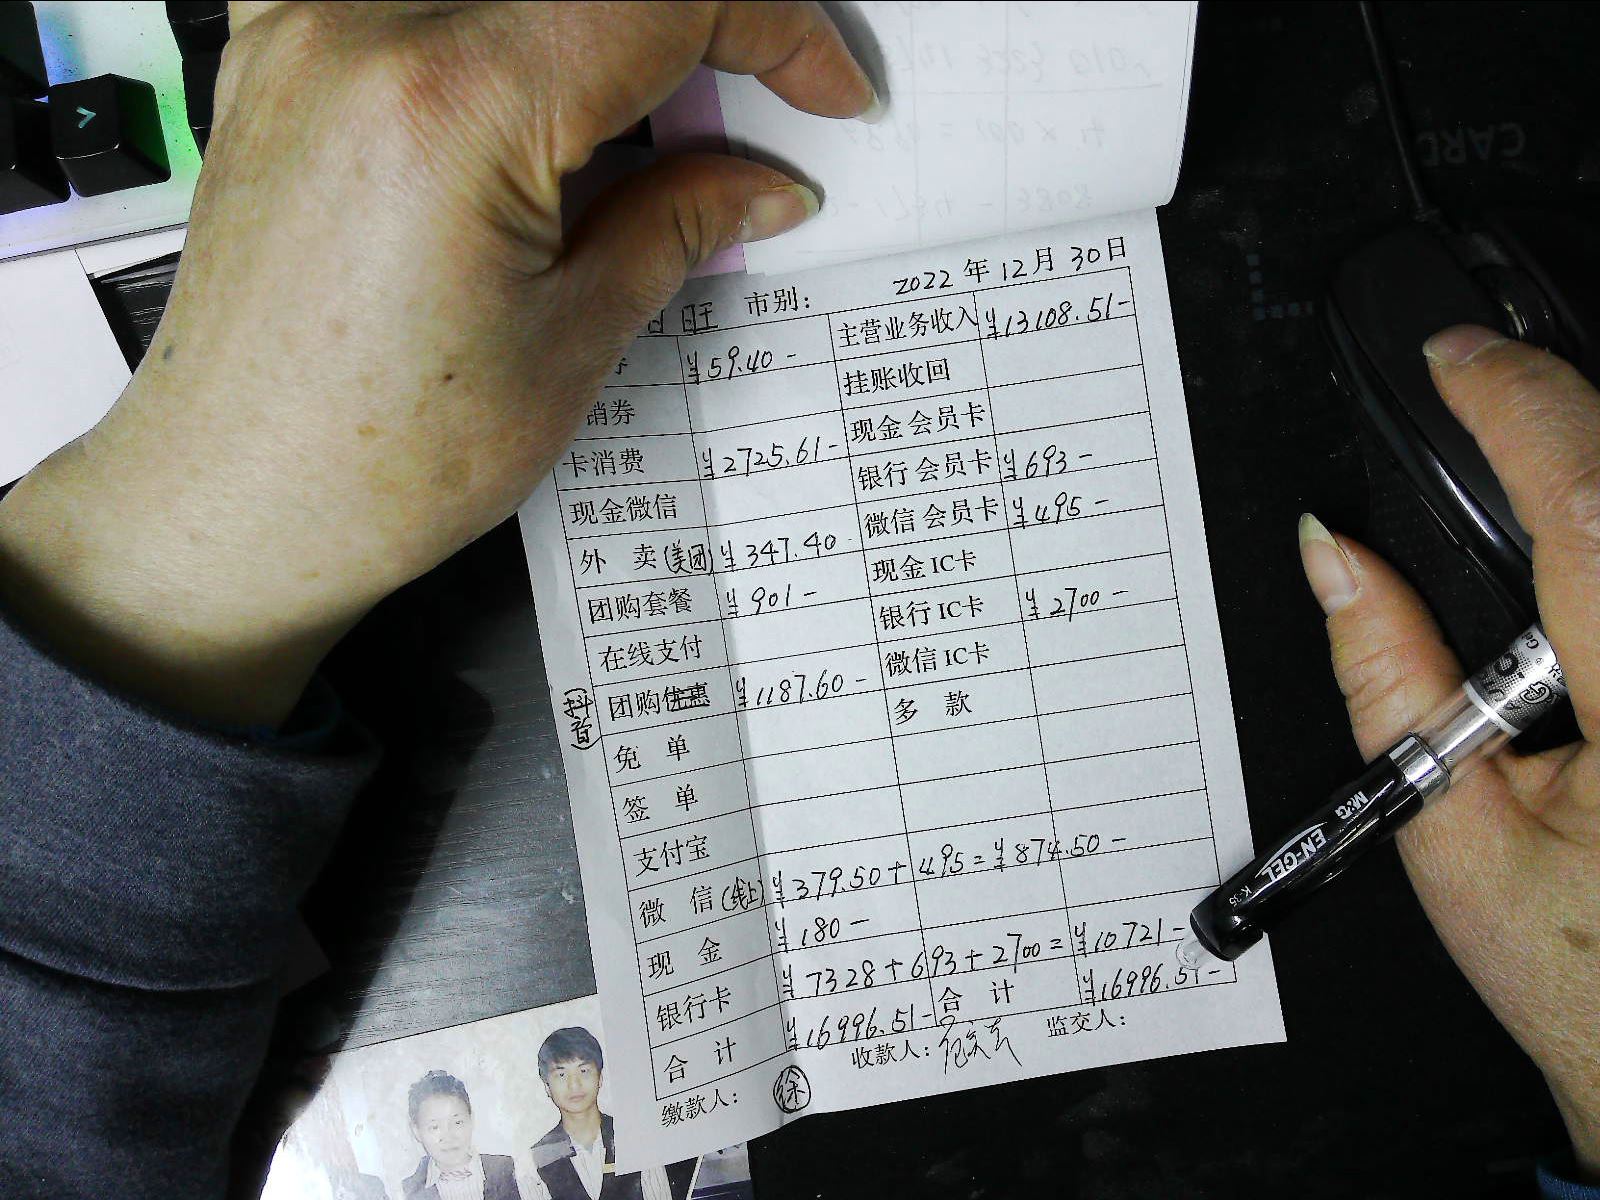 2022 年 12 月 30 日
旺 市别：
券 ¥59.40 - 主营业务收入 ¥13108.51-
销券 挂账收回
卡消费 ¥2725.61- 现金 会员卡
现金微信 银行 会员卡 ¥693-
外 卖(美团) ¥347.40 微信 会员卡 ¥495-
团购套餐 ¥901- 现金 IC卡
在线支付 银行 IC卡 ¥2700-
(抖音) 团购优惠 ¥1187.60- 微信 IC卡
免 单 多 款
签 单
支付宝
微 信(线上) ¥379.50+495=¥874.50-
现 金 ¥180-
银行卡 ¥7328+693+2700=¥10721-
合 计 ¥16996.51- 合 计 ¥16996.51-
缴款人： 徐 收款人： 监交人：
CARD
M&G
EN-GEL
K-35